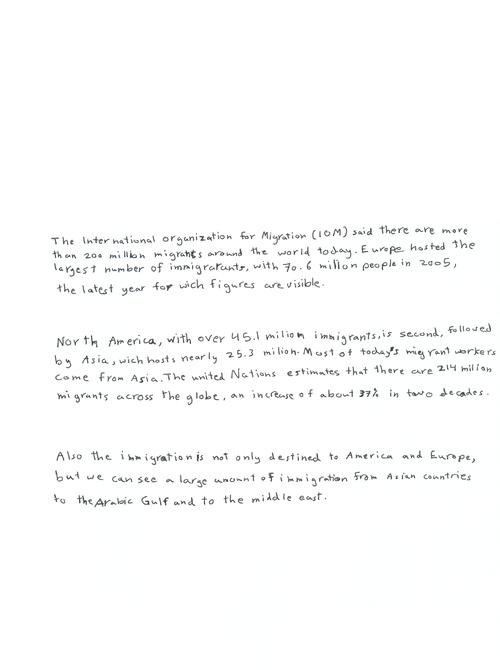 The International organization for Migration (IOM) said there are more
than 200 million migrants around the world today. Europe hosted the
largest number of immigratants, with 70.6 millon people in 2005,
the latest year for wich figures are visible.
North America, with over 45.1 milion immigrants, is second, followed
by Asia, wich hosts nearly 25.3 milion. Most of today's migrant workers
come from Asia. The united Nations estimates that there are 214 milion
migrants across the globe, an increase of about 37% in two decades.
Also the immigration is not only destined to America and Europe,
but we can see a large amount of immigration from Asian countries
to the Arabic Gulf and to the middle east.